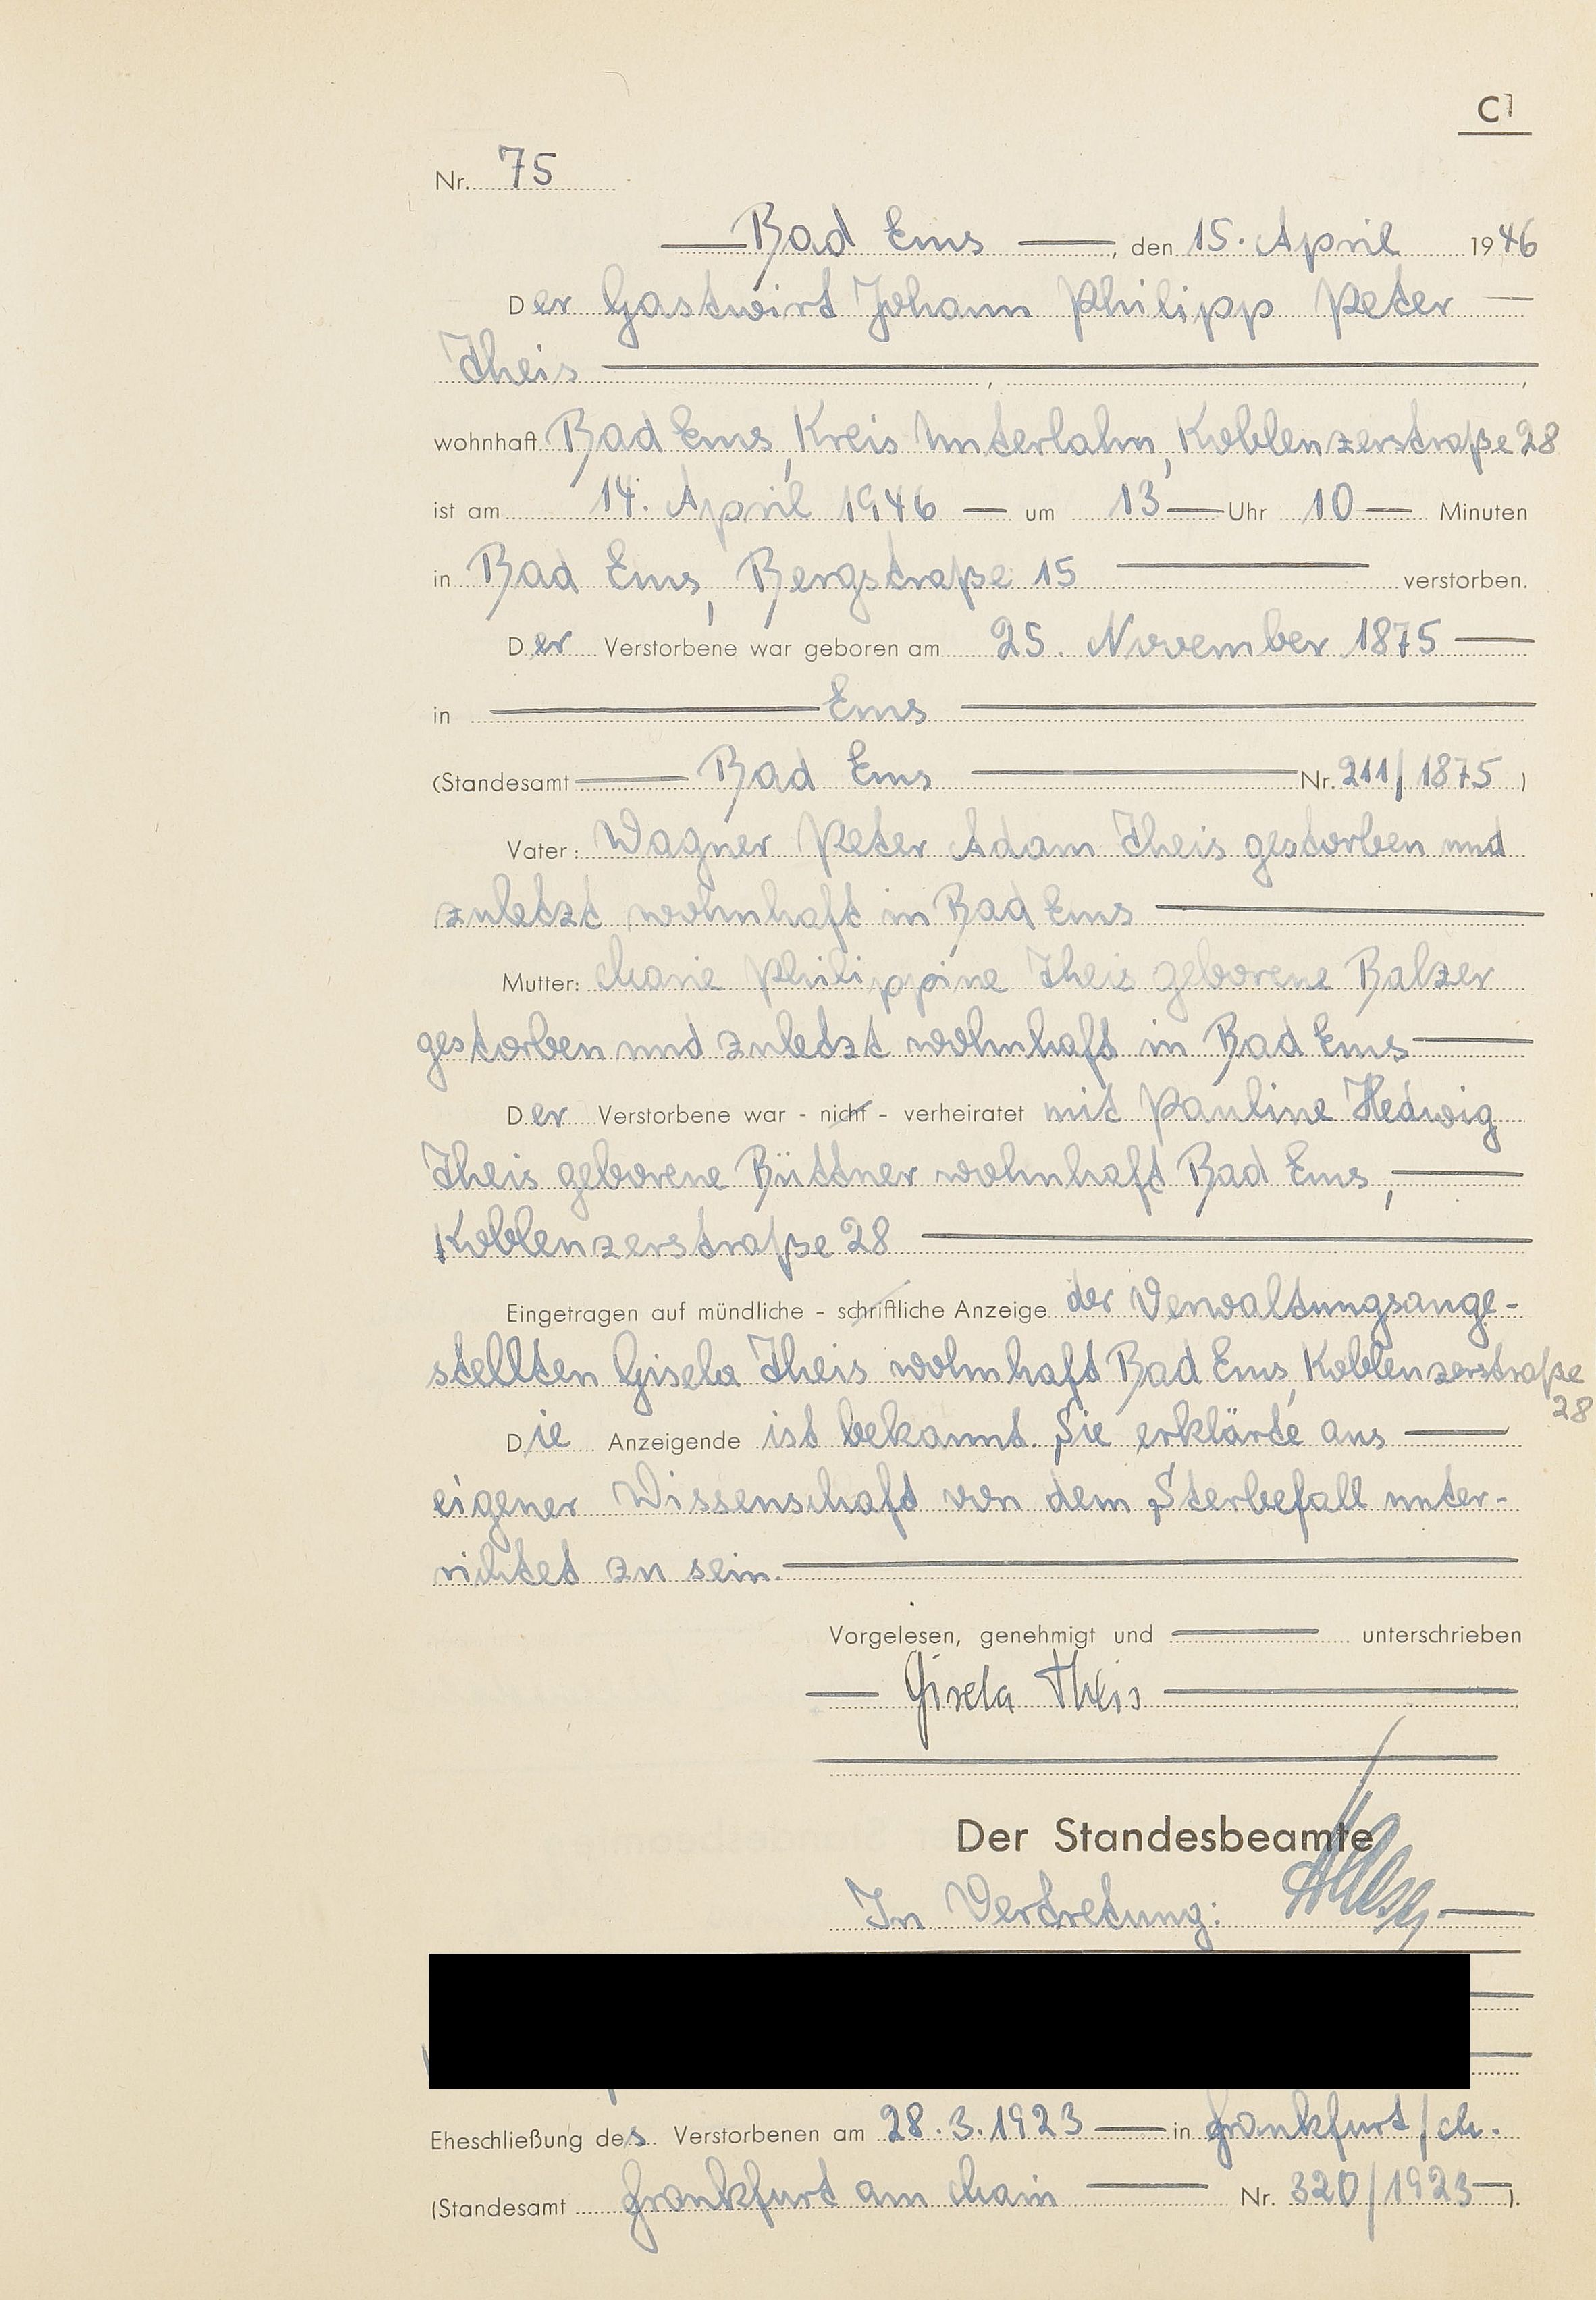 C
Nr. 75
Bad Ems, den 15. April 1946
Der Gastwirt Johann Philipp Peter
Theis
wohnhaft Bad Ems, Kreis Unterlahn, Koblenzerstraße 28
ist am 14. April 1946 um 13 Uhr 10 Minuten
in Bad Ems, Bergstraße 15 verstorben.
Der Verstorbene war geboren am 25. November 1875
in Ems
(Standesamt Bad Ems Nr. 211/1875)
Vater: Wagner Peter Adam Theis gestorben und
zuletzt wohnhaft in Bad Ems
Mutter: Marie Philippine Theis geborene Balzer
gestorben und zuletzt wohnhaft in Bad Ems
Der Verstorbene war - nicht - verheiratet mit Pauline Hedwig
Theis geborene Büttner wohnhaft Bad Ems,
Koblenzerstraße 28
Eingetragen auf mündliche - schriftliche Anzeige der Verwaltungsange-
stellten Gisela Theis wohnhaft Bad Ems, Koblenzerstraße
28
Die Anzeigende ist bekannt. Sie erklärte aus
eigener Wissenschaft von dem Sterbefall unter-
richtet zu sein.
Vorgelesen, genehmigt und unterschrieben
Gisela Theis
Der Standesbeamte
In Vertretung:
Eheschließung des Verstorbenen am 28.3.1923 in Frankfurt/M.
(Standesamt Frankfurt am Main Nr. 320/1923).